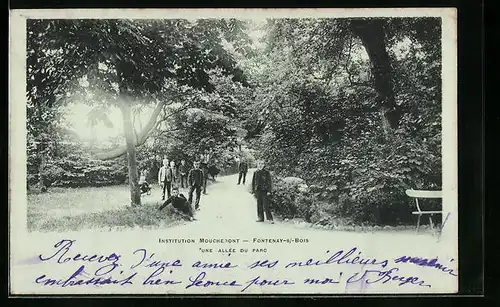 INSTITUTION MOUCHEMONT — FONTENAY-S/-BOIS
UNE ALLÉE DU PARC
Recevez d'une amie ses meilleures
embrassait bien pour moi